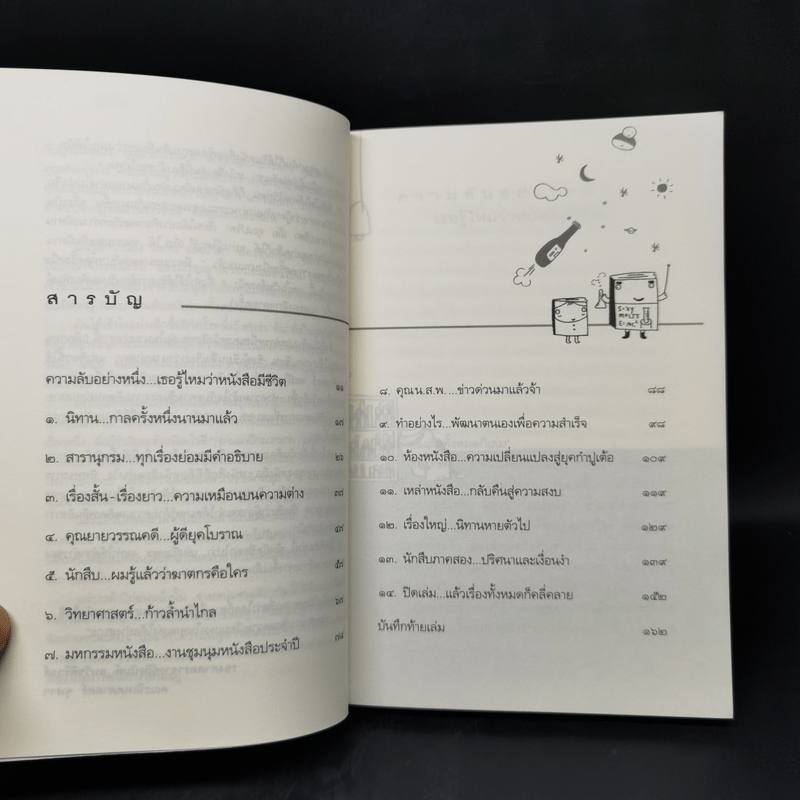 สารบัญ
ความลับอย่างหนึ่ง...เธอรู้ไหมว่าหนังสือมีชีวิต ๑๑
๑. นิทาน...กาลครั้งหนึ่งนานมาแล้ว ๑๗
๒. สารานุกรม...ทุกเรื่องย่อมมีคำอธิบาย ๒๖
๓. เรื่องสั้น-เรื่องยาว...ความเหมือนบนความต่าง ๓๗
๔. คุณยายวรรณคดี...ผู้ดียุคโบราณ ๔๗
๕. นักสืบ...ผมรู้แล้วว่าฆาตกรคือใคร ๕๗
๖. วิทยาศาสตร์...ก้าวล้ำนำไกล ๖๗
๗. มหกรรมหนังสือ...งานชุมนุมหนังสือประจำปี ๗๘
๘. คุณ น.ส.พ. ...ข่าวด่วนมาแล้วจ้า ๘๘
๙. ทำอย่างไร...พัฒนาตนเองเพื่อความสำเร็จ ๙๘
๑๐. ห้องหนังสือ...ความเปลี่ยนแปลงสู่ยุคกำปูเต้อ ๑๐๙
๑๑. เหล่าหนังสือ...กลับคืนสู่ความสงบ ๑๑๙
๑๒. เรื่องใหญ่...นิทานหายตัวไป ๑๒๙
๑๓. นักสืบภาคสอง...ปริศนาและเงื่อนงำ ๑๓๙
๑๔. ปิดเล่ม...แล้วเรื่องทั้งหมดก็คลี่คลาย ๑๕๒
บันทึกท้ายเล่ม ๑๖๒